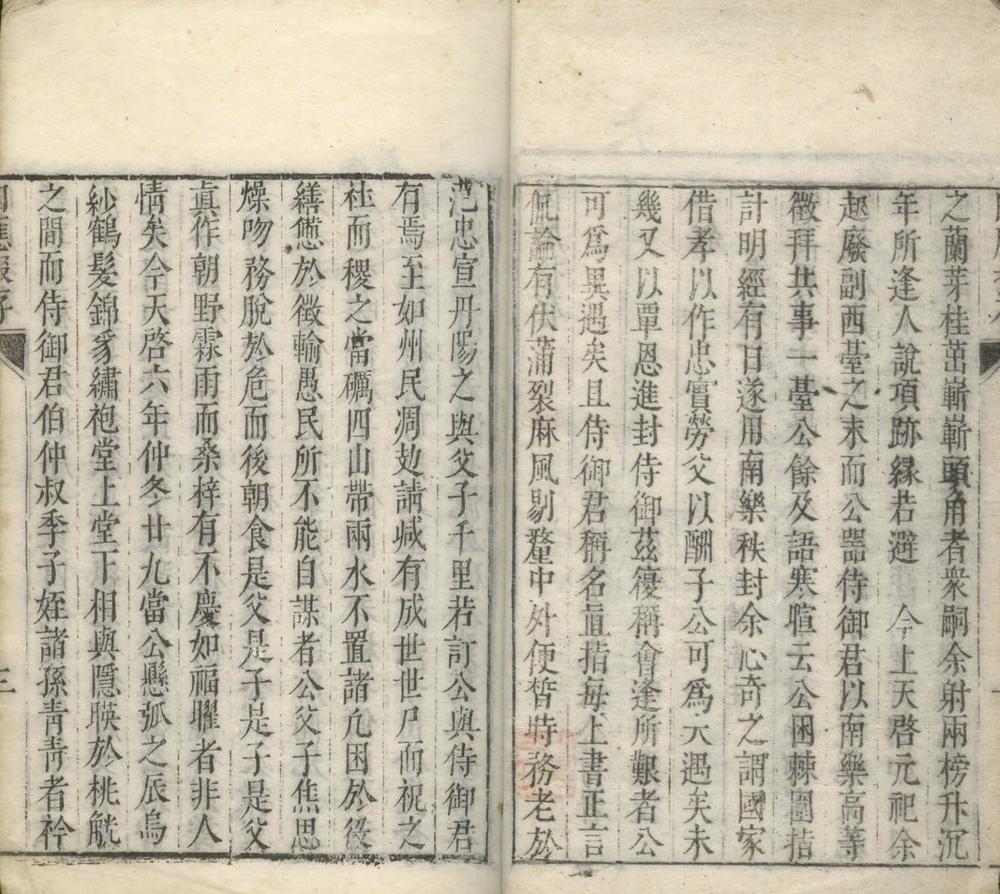 之蘭芽桂茁嶄嶄頭角者衆嗣余射兩榜升沉
年所逢人說項跡緣若避　今上天啓元祀余
起廢副西臺之末而公噐侍御君以南樂高等
徵拜共事一臺公餘及語寒暄云公困棘圍拮
計明經有日遂用南樂秩封余心奇之謂國家
借孝以作忠實勞父以酬子公可爲一遇矣未
幾又以覃恩進封侍御茲篗稱會逢所艱者公
可爲異遇矣且侍御君稱名直指每上書正言
侃論有伏蒲裂麻風剔釐中外便皆時務老於
范忠宣丹陽之與父子千里若訂公與侍御君
有焉至如州民凋攰請緘有成世世尸而祝之
社而稷之當礪四山帶兩水不置諸凢困於役
繕憊於徵輸愚民所不能自謀者公父子焦思
燥吻務脫於危而後朝食是父是子是子是父
眞作朝野霖雨而桑梓有不慶如福曜者非人
情矣今天啓六年仲冬廿九當公懸弧之辰烏
紗鶴髮錦豸繡袍堂上堂下相與隱暎於桃觥
之間而侍御君伯仲叔季子姪諸孫靑靑者衿
序
三